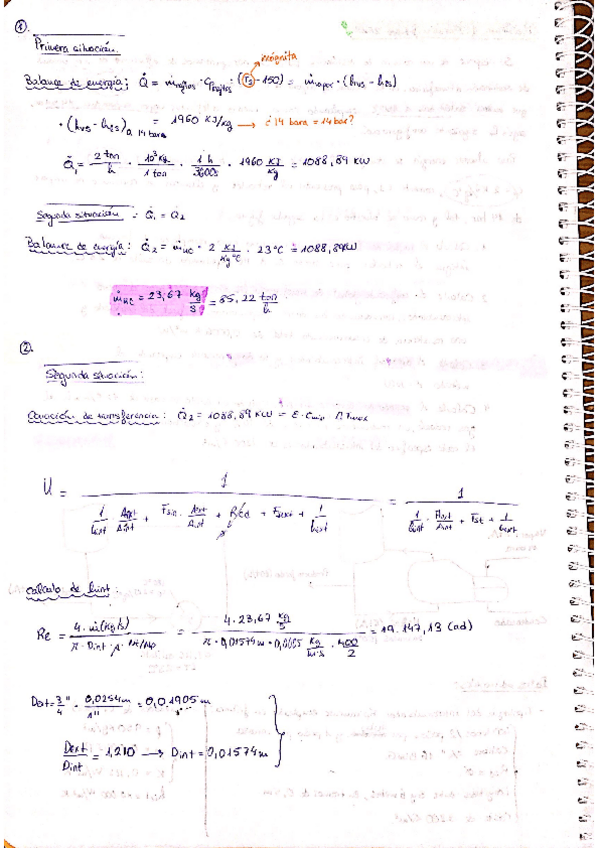 ①.
Primera situación.
incógnita
Balance de energía: Q̇ = ṁ · (T₅ - 150) = ṁvapor · (hvs - hls)
• (hvs - hls)a 14 bara = 1960 KJ/Kg → ¿14 bara = 14 bar?
Q̇₁ = 2 ton/h · 10³ Kg/1 ton · 1 h/3600s · 1960 KJ/Kg = 1088,89 KW
Segunda situación : Q̇₁ = Q̇₂
Balance de energía: Q̇₂ = ṁHC · 2 KJ/Kg°C · 23°C = 1088,89KW
ṁHC = 23,67 Kg/s = 85,22 ton/h
②.
Segunda situación:
Ecuación de transferencia: Q̇₂ = 1088,89 KW = ε · Cmin
U = 1 / (1/hint · Aext/Aint + Fsin · Aext/Aint + Red + Fsext + 1/hext) = 1 / (1/hint · Aext/Aint + Fst + 1/hext)
calculo de hint:
Re = 4 · ṁ(Kg/s) / π · Dint · μ · = 4 · 23,67 Kg/s / π · 0,01574m · 0,0005 Kg/m·s · 400/2 = 19.147,13 (ad)
Dext = 3/4" · 0,0254m/1" = 0,01905 m
Dext/Dint = 1,210 → Dint = 0,01574m